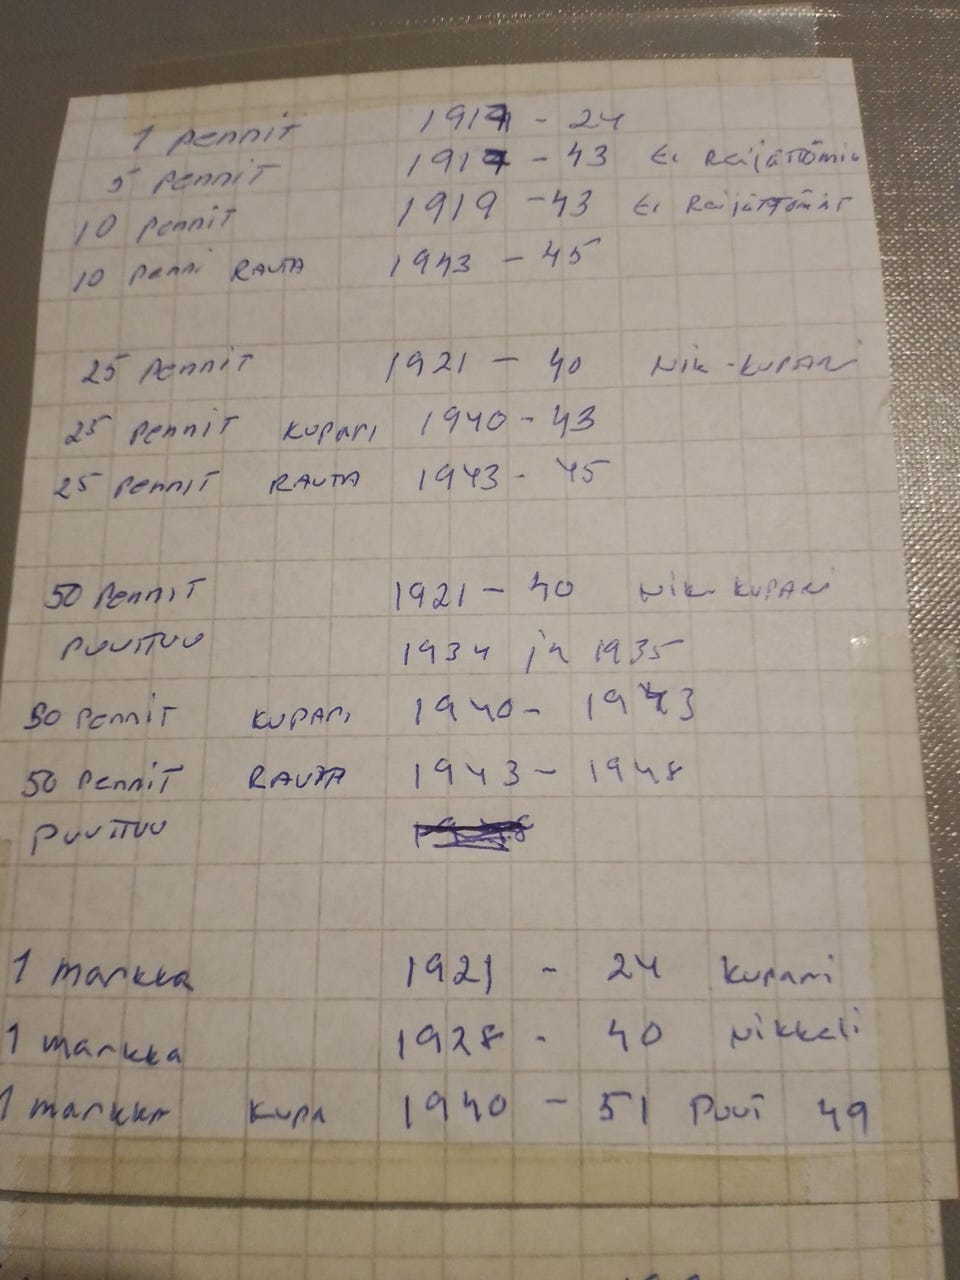 1 pennit 1919 - 24
5 pennit 1919 - 43 Ei Reijättömiä
10 pennit 1919 - 43 Ei Reijättömät
10 penni RAUTA 1943 - 45
25 pennit 1921 - 40 Nik-KUPARI
25 pennit KUPARI 1940 - 43
25 pennit RAUTA 1943 - 45
50 pennit 1921 - 40 Nik-KUPARI
puuttuu 1934 ja 1935
50 pennit KUPARI 1940 - 1943
50 pennit RAUTA 1943 - 1948
puuttuu
1 markka 1921 - 24 Kupari
1 markka 1928 - 40 Nikkeli
1 markka KUPA 1940 - 51 puut 49